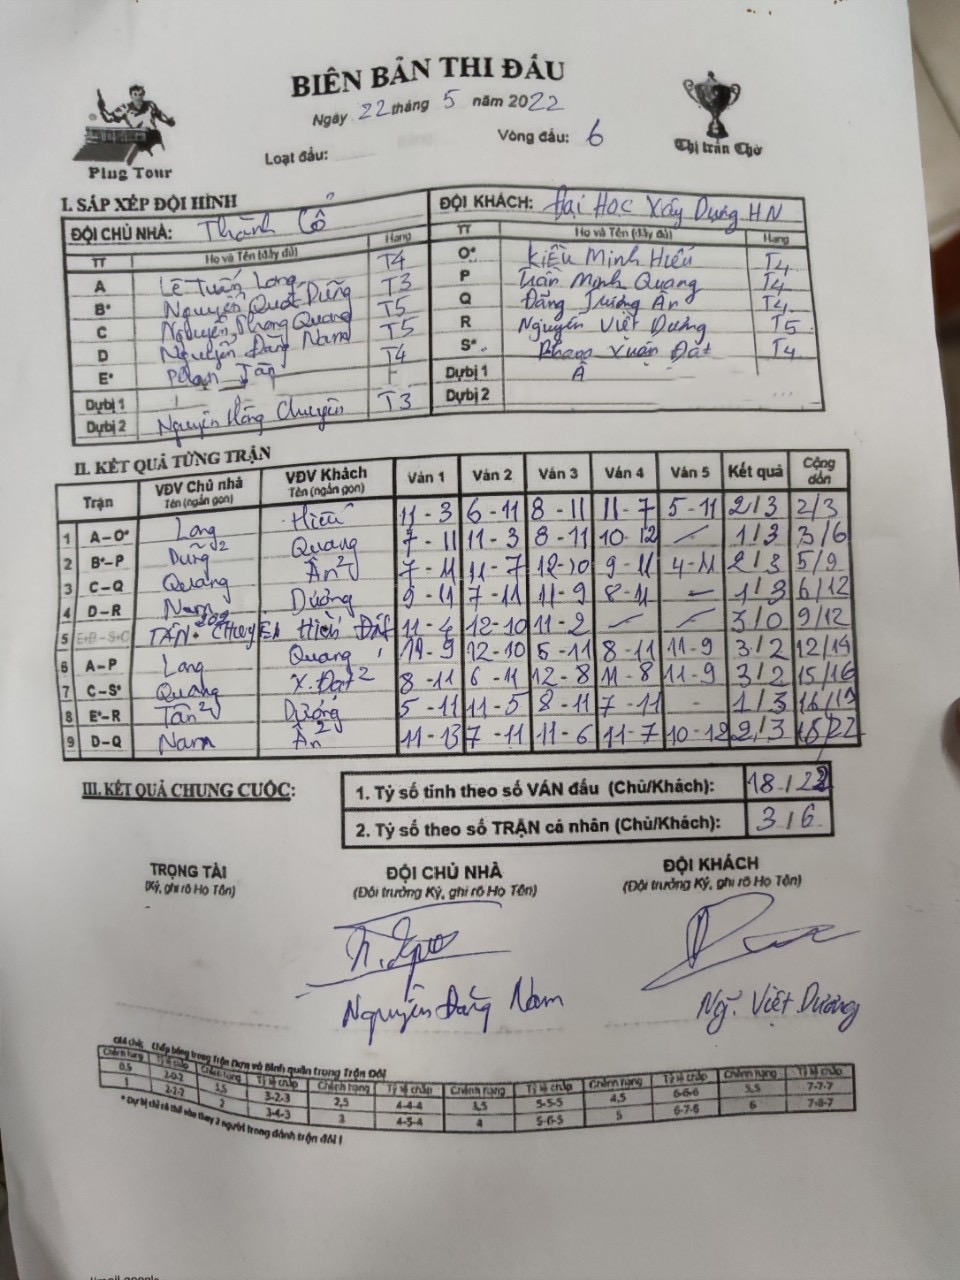 BIÊN BẢN THI ĐẤU
Ngày 22 tháng 5 năm 2022
Ping Tour
Loạt đấu:
Vòng đấu: 6
Thị trấn Chờ
I. SẮP XẾP ĐỘI HÌNH
ĐỘI CHỦ NHÀ: Thành Cổ
ĐỘI KHÁCH: Đại Học Xây Dựng HN
TT Họ và Tên (đầy đủ) Hạng TT Họ và Tên (đầy đủ) Hạng
A Lê Tuấn Long T4 O* Kiều Minh Hiếu T4
B* Nguyễn Quốc Dũng T3 P Trần Minh Quang T4
C Nguyễn Phong Quang T5 Q Đặng Trường An T4
D Nguyễn Đăng Nam T5 R Nguyễn Việt Dương T5
E* Phạm Tân T4 S* Phạm Xuân Đạt T4
Dự bị 1 Dự bị 1
Dự bị 2 Nguyễn Hồng Chuyên T3 Dự bị 2
II. KẾT QUẢ TỪNG TRẬN
Trận VĐV Chủ nhà Tên (ngắn gọn) VĐV Khách Tên (ngắn gọn) Ván 1 Ván 2 Ván 3 Ván 4 Ván 5 Kết quả Cộng dồn
1 A-O* Long Hiếu 11-3 6-11 8-11 11-7 5-11 2/3 2/3
2 B*-P Dũng 2 Quang 7-11 11-3 8-11 10-12 - 1/3 3/6
3 C-Q Quang Ân 2 7-11 11-7 12-10 9-11 4-11 2/3 5/9
4 D-R Nam Dương 9-11 7-11 11-9 8-11 - 1/3 6/12
5 E+B - S+C TÂN + Chuyên Hiếu Đạt 11-4 12-10 11-2 - - 3/0 9/12
6 A-P Long Quang 11-9 12-10 5-11 8-11 11-9 3/2 12/14
7 C-S* Quang X. Đạt 2 8-11 6-11 12-8 11-8 11-9 3/2 15/16
8 E*-R Tân 2 Dương 5-11 11-5 8-11 7-11 - 1/3 16/19
9 D-Q Nam Ân 2 11-13 7-11 11-6 11-7 10-12 2/3 18/22
III. KẾT QUẢ CHUNG CUỘC:
1. Tỷ số tính theo số VÁN đấu (Chủ/Khách): 18/22
2. Tỷ số theo số TRẬN cá nhân (Chủ/Khách): 3/6
TRỌNG TÀI ĐỘI CHỦ NHÀ ĐỘI KHÁCH
(Ký, ghi rõ Họ Tên) (Đội trưởng Ký, ghi rõ Họ Tên) (Đội trưởng Ký, ghi rõ Họ Tên)
Nguyễn Đăng Nam Ng. Việt Dương
Ghi chú: Chấp bóng trong Trận Đơn và Bình quân trong Trận Đôi
Chênh hạng Tỷ lệ chấp Chênh hạng Tỷ lệ chấp Chênh hạng Tỷ lệ chấp Chênh hạng Tỷ lệ chấp Chênh hạng Tỷ lệ chấp Chênh hạng Tỷ lệ chấp
0,5 2-0-2 1,5 3-2-3 2,5 4-4-4 3,5 5-5-5 4,5 6-6-6 5,5 7-7-7
1 2-2-2 2 3-4-3 3 4-5-4 4 5-6-5 5 6-7-6 6 7-8-7
* Dự bị chỉ có thể vào thay 2 người trong đánh trận đôi !